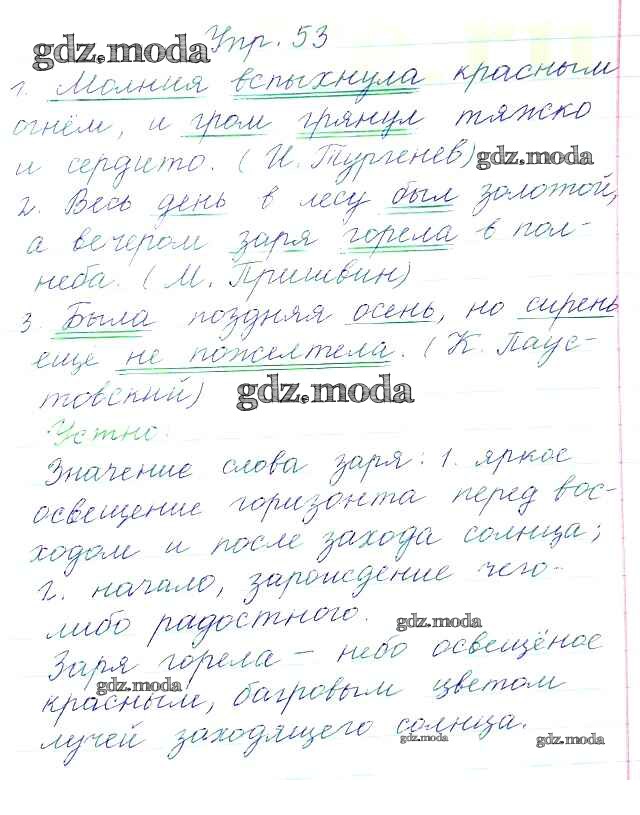 gdz.moda Упр. 53
1. Молния вспыхнула красным
огнём, и гром грянул тяжко
и сердито. (И. Тургенев) gdz.moda
2. Весь день в лесу был золотой,
а вечером заря горела в пол-
неба. (М. Пришвин)
3. Была поздняя осень, но сирень
еще не пожелтела. (К. Паус-
товский) gdz.moda
Устно:
Значение слова заря: 1. яркое
освещение горизонта перед вос-
ходом и после захода солнца;
2. начало, зарождение чего-
либо радостного. gdz.moda
Заря горела – небо освещёное
gdz.moda
красным, багровым цветом
лучей заходящего солнца.
gdz.moda gdz.moda